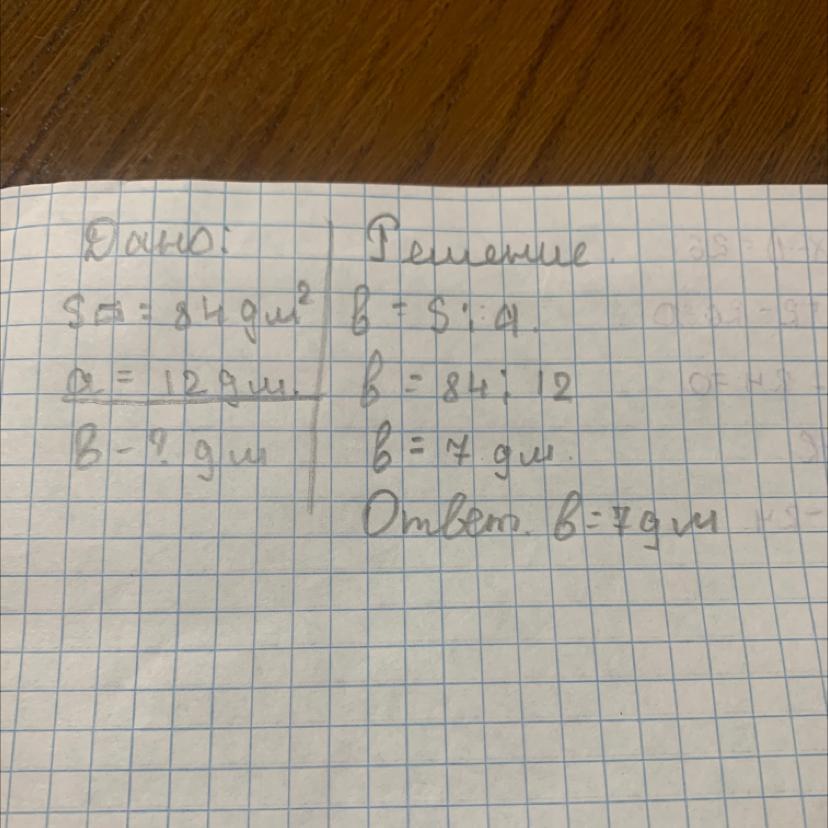 Дано:
S▭ = 84 дм²
a = 12 дм.
в - ? дм
Решение.
в = S : a.
в = 84 : 12
в = 7 дм.
Ответ. в = 7 дм